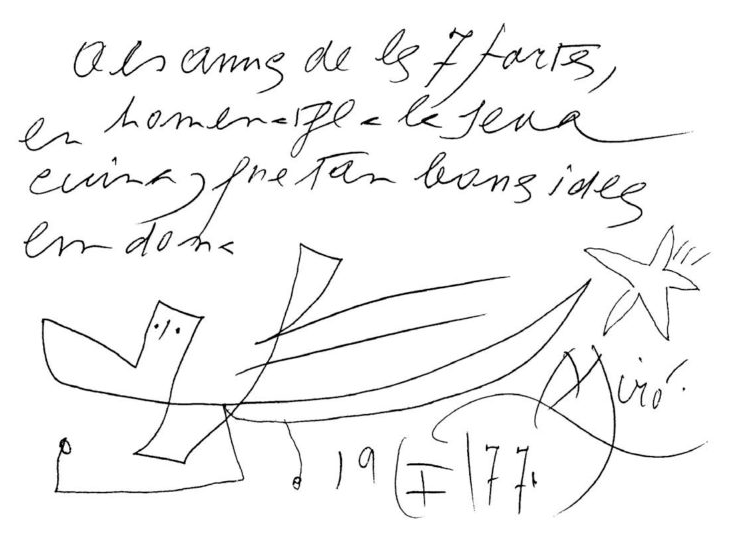 Als amos de les 7 Portes,
en homenatge a la seva
cuina, que tan bones idees
em dona
Miró.
19/I/77.